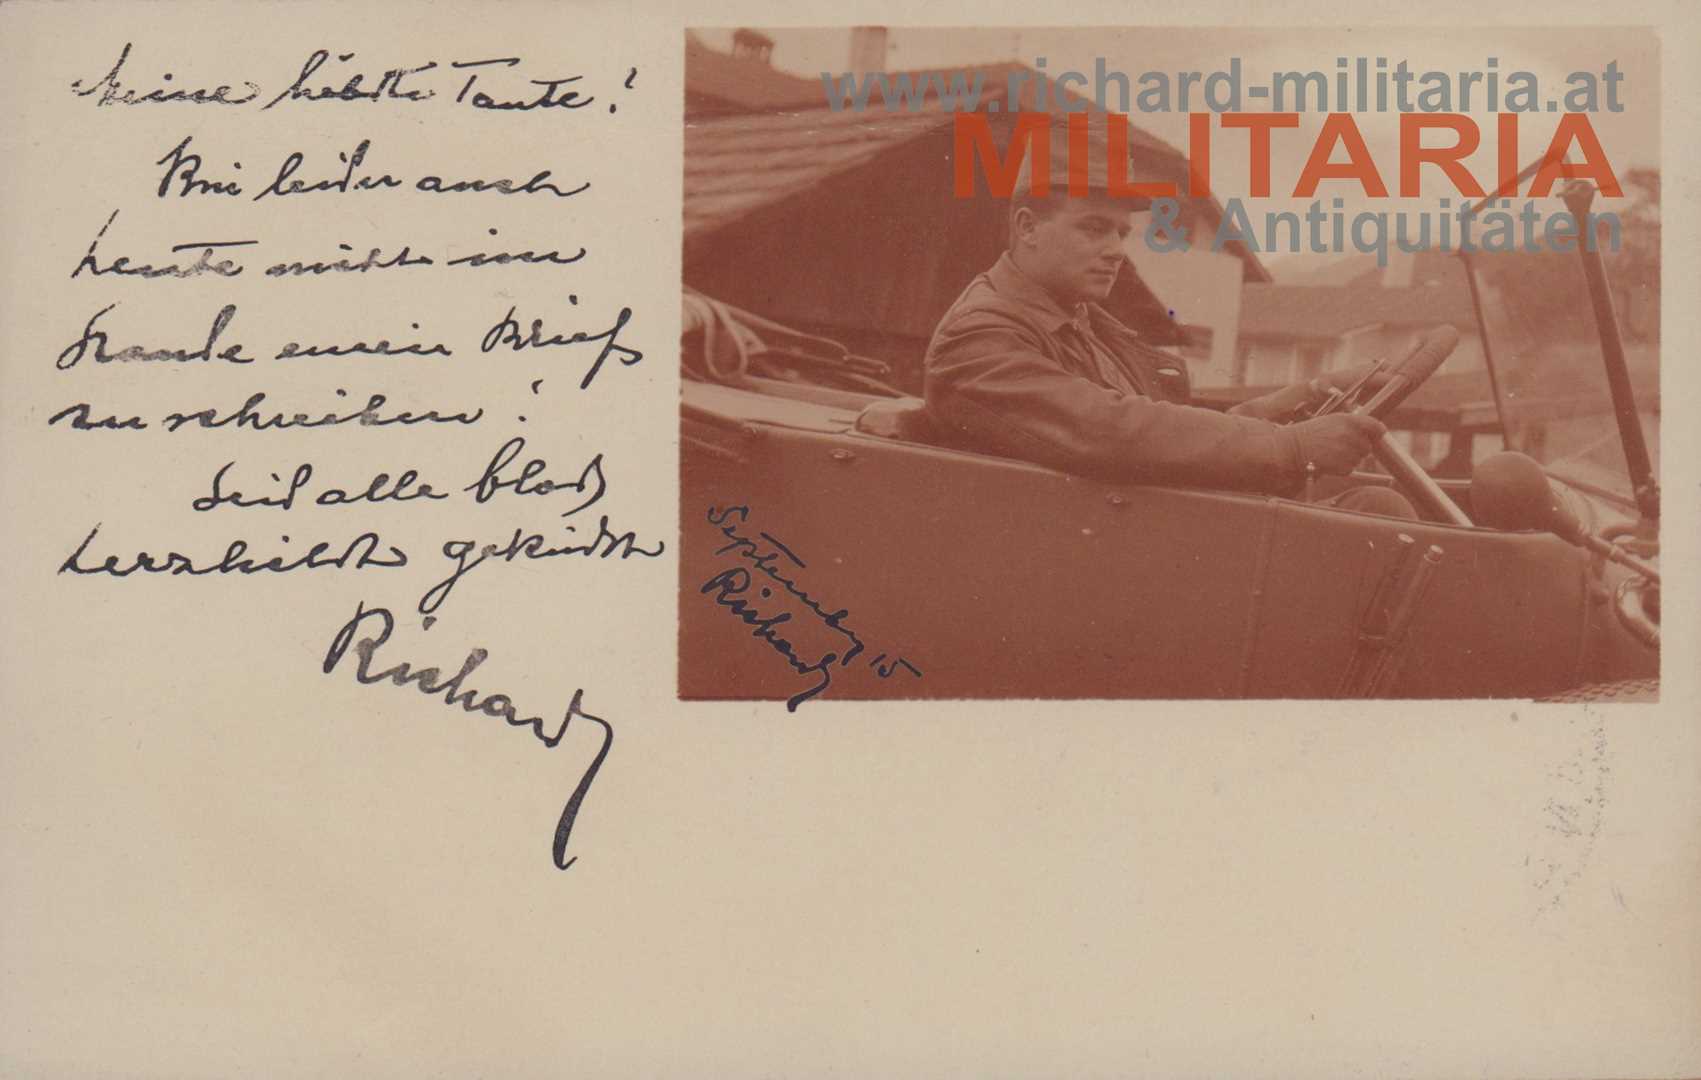 Meine liebste Tante!
Bin leider auch
heute nicht im
Stande einen Brief
zu schreiben!
Seid alle bloß
herzlichst geküsst
Richard
September 15
Richard
www.richard-militaria.at
MILITARIA
& Antiquitäten